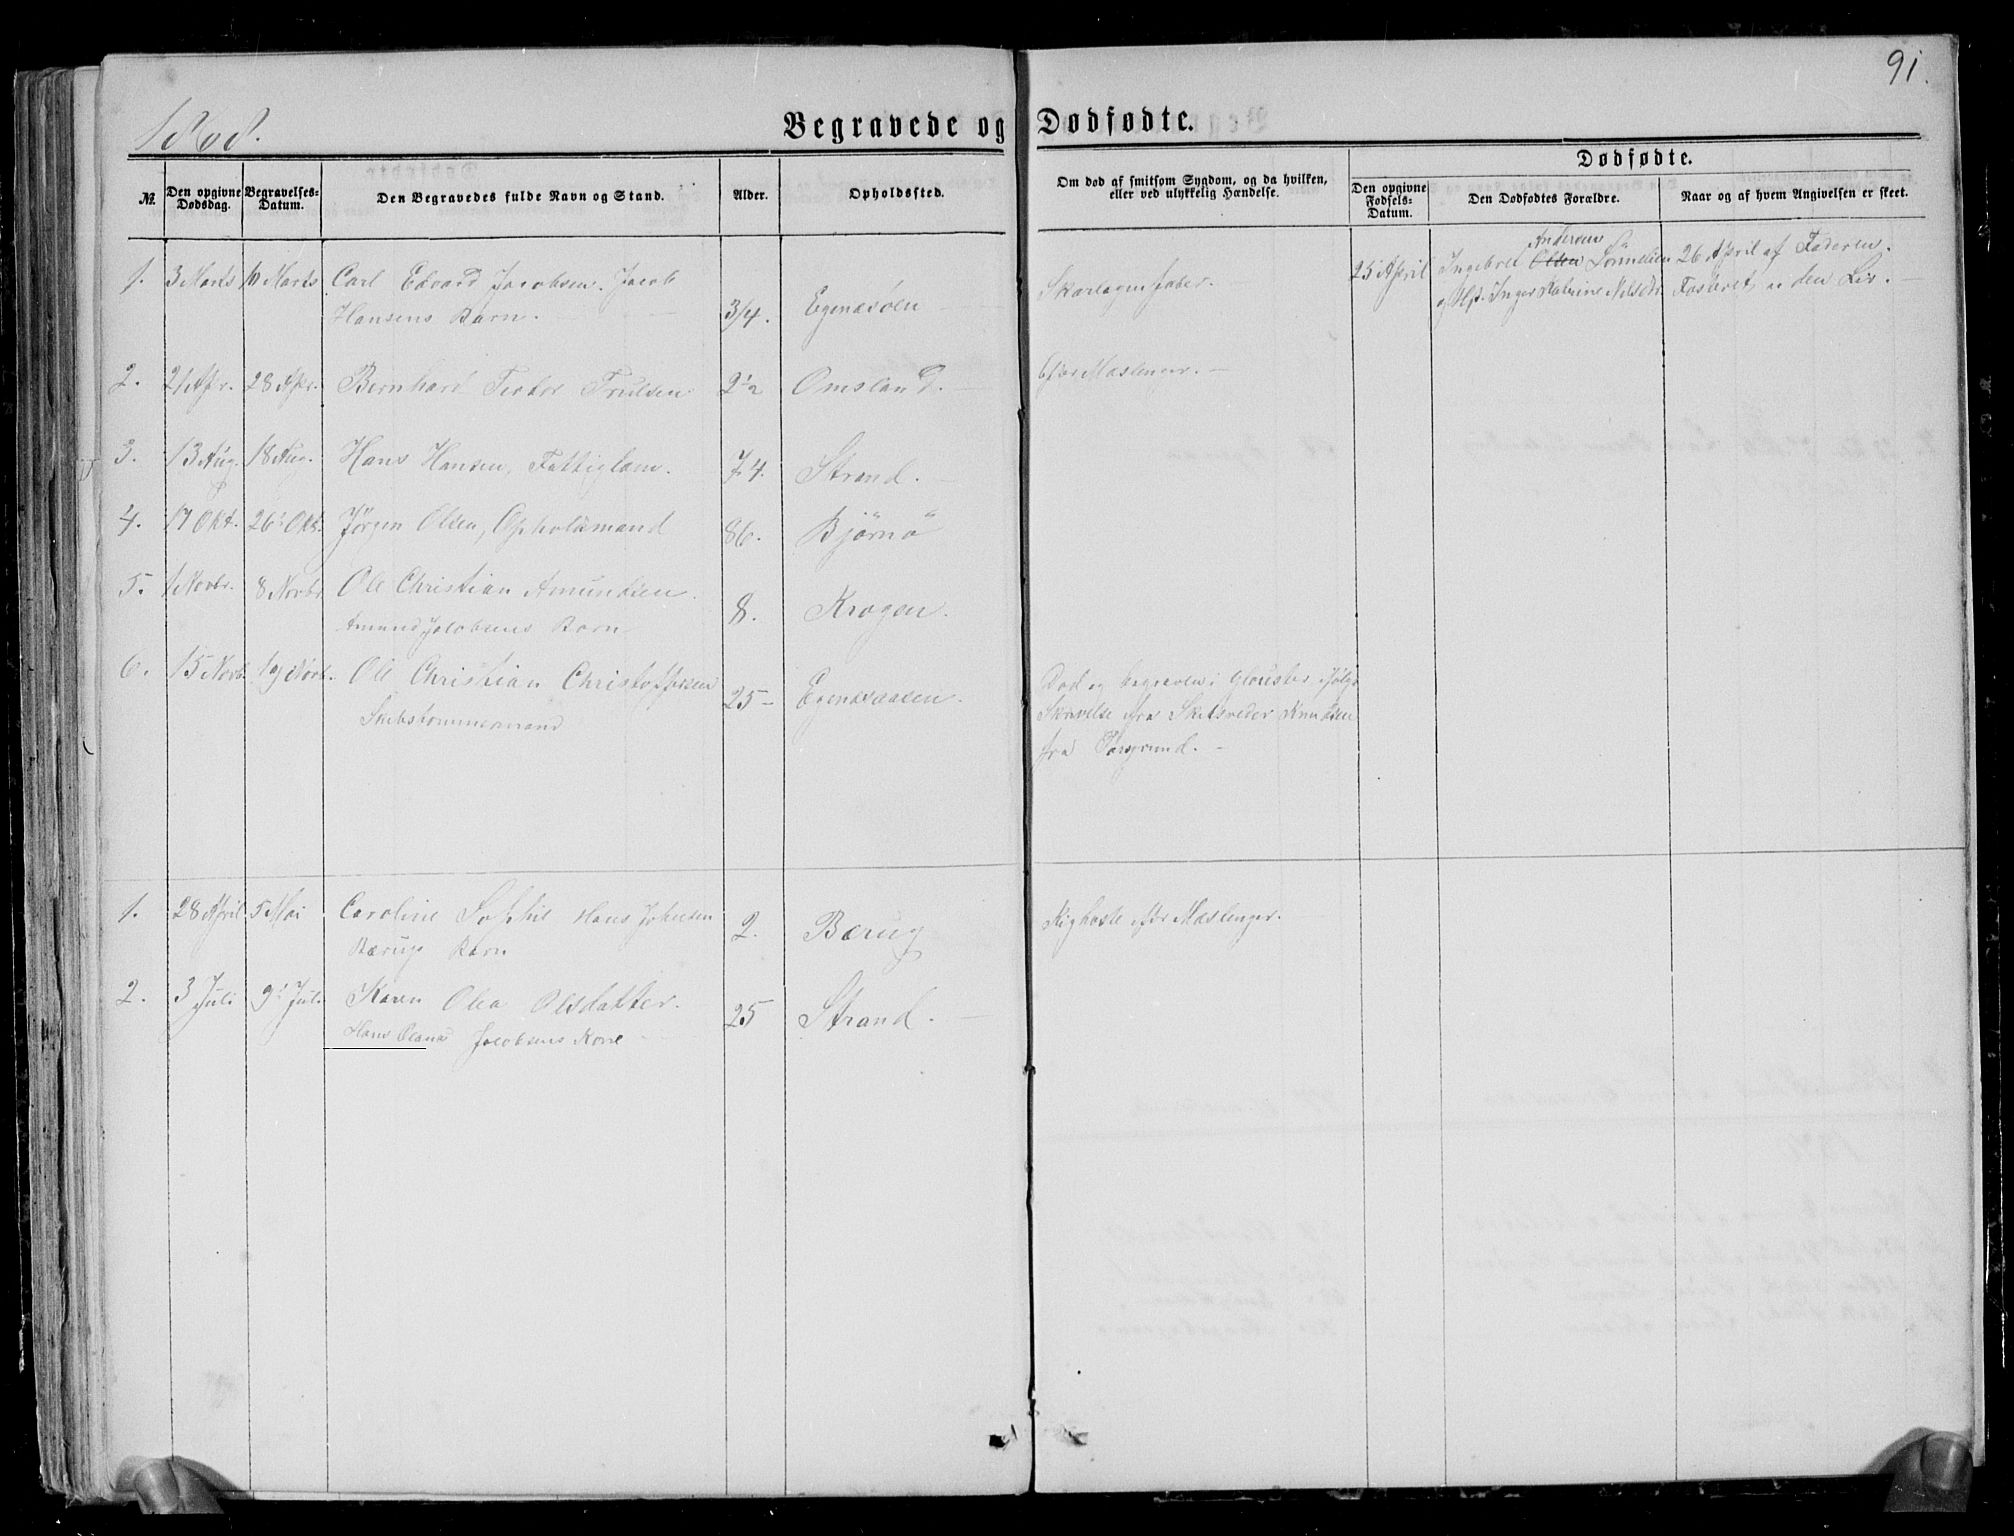 91.
1868.
Begravede og Dødfødte.
Dødfødte.
No.
Den opgivne Dødsdag.
Begravelses-Datum.
Den Begravedes fulde Navn og Stand.
Alder.
Opholdssted.
Om død af smitsom Sygdom, og da hvilken,
eller ved ulykkelig Hændelse.
Den opgivne Fødsels-Datum.
Den Dødfødtes Forældre.
Naar og af hvem Angivelsen er skeet.
1. 3 Marts 10 Marts Carl Edvard Jacobsen. Jacob
Hansens Barn. 3/4. Egenæsøen
Skarlagensfeber.
25 April
Andersen
Ingebret Olsen Lönnelien
og Hst. Inger Katrine Nilsdr.
26 April af Faderen.
Fosteret u den Liv.
2. 21 Apr. 28 Apr. Bernhard Teodor Trulsen 2 1/2 Omsland.
efter Mæslinger.
3. 13 Aug. 18 Aug. Hans Hansen, Fattiglem. 74. Strand.
4. 17 Okt. 26 Okt. Jörgen Olsen, Opholdsmand 86. Bjørnø
5. 1 Novbr. 8 Novbr Ole Christian Amundsen.
Amund Jacobsens Barn 8. Krogen.
6. 15 Novb. 19 Novb. Ole Christian Christoffersen
Skibstømmermand 25 Egenæsaasen.
Død og begraven i Glouster ifølge
Skrivelse fra Skibsreder Knudsen
fra Porsgrund.
1. 28 April 5 Mai Caroline Sophie Hans Johnsen
Bærugs Barn 2. Bærug
Kighoste efter Mæslinger.
2. 3 Juli 9 Juli Karen Olea Olsdatter.
Hans Jacobsens Kone 25 Strand.